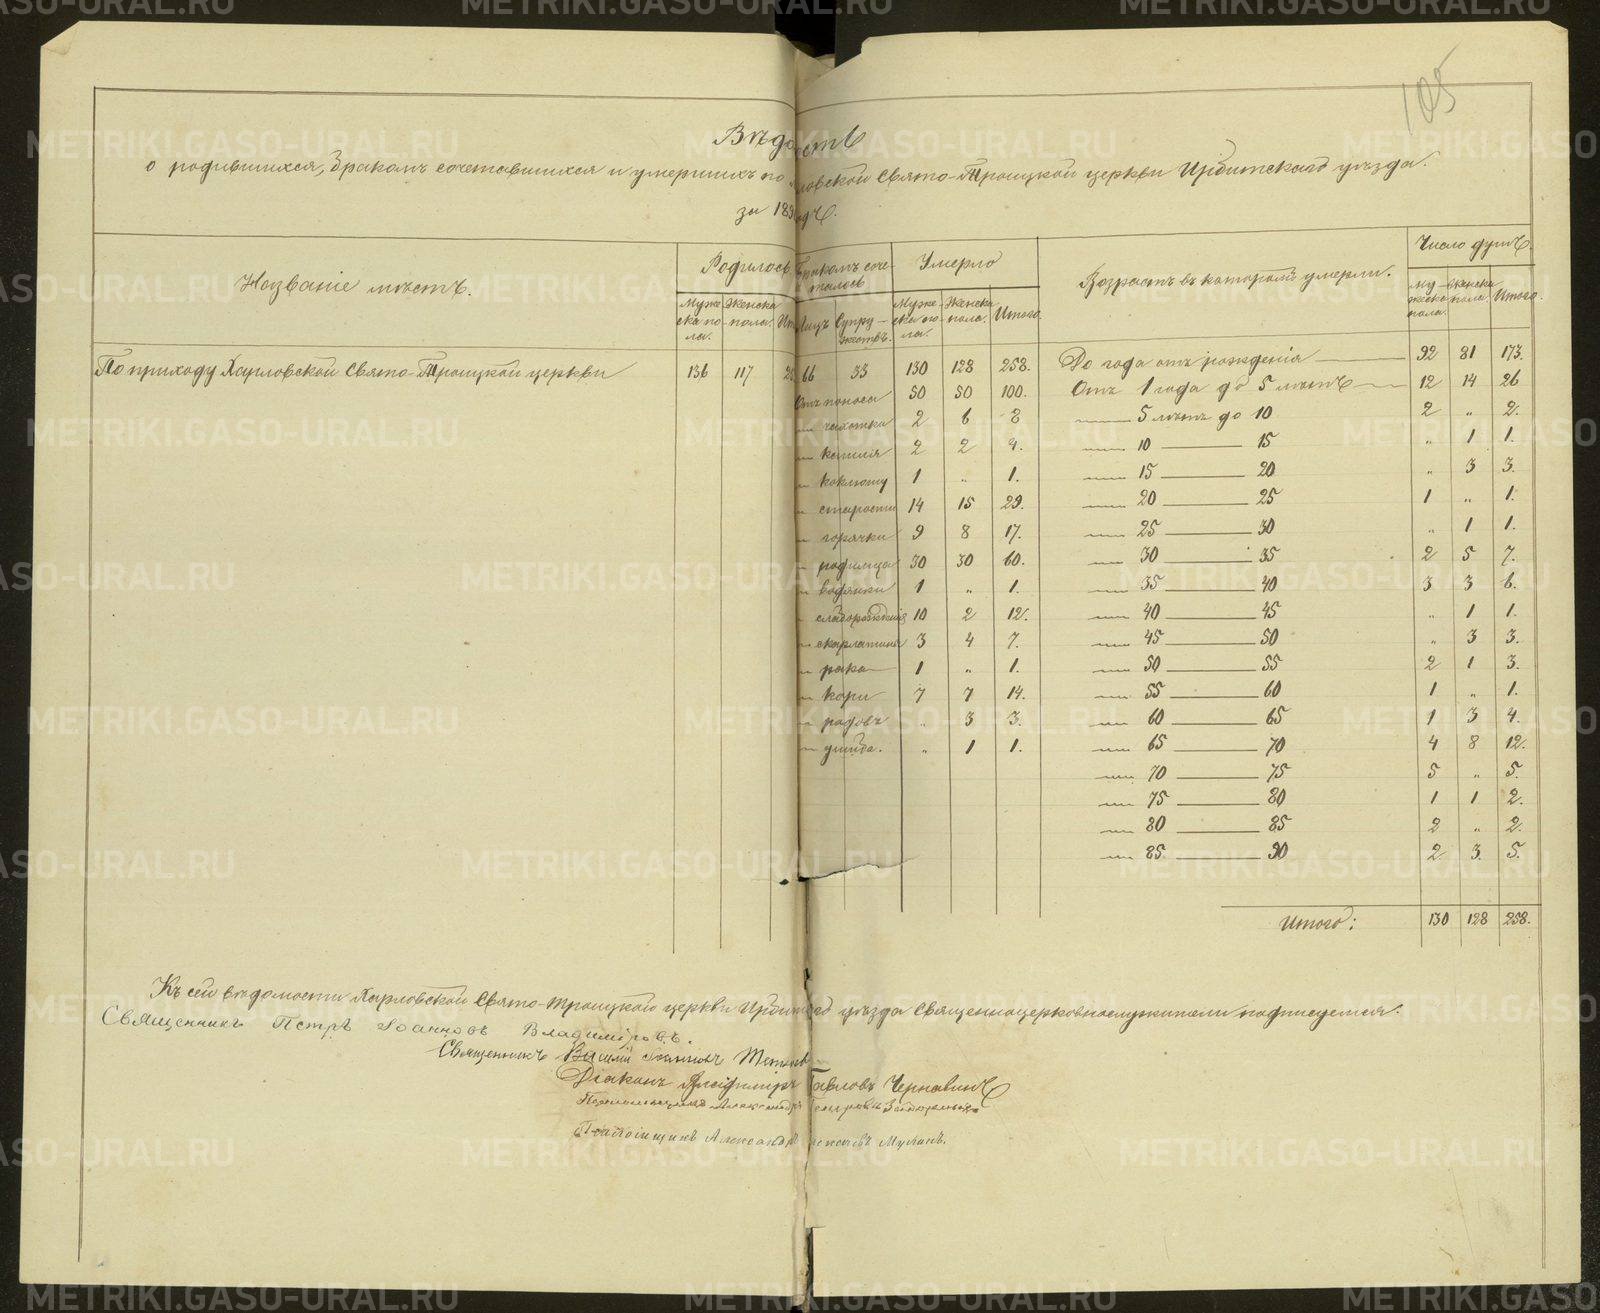 105
Вѣдо мость
о родившихся, бракомъ сочетавшихся и умершихъ по ловской Свято-Троицкой церкви Ирбитскаго уѣзда
за 189 одъ.
Названіе мѣстъ.
Родилось
Мужеска пола. Женска пола. Ит
Бракомъ сочеталось
Лицъ Супружествъ.
Умерло
Мужеска пола. Женска пола. Итого
Возрастъ въ которомъ умерли.
Число душъ.
Мужеска пола. Женска пола. Итого.
По приходу Харловской Свято-Троицкой церкви 136 117 25 66 33 130 128 258. До года отъ рожденія 92 81 173.
Отъ поноса 50 50 100. Отъ 1 года до 5 лѣтъ 12 14 26
— чахотки 2 6 8 — 5 лѣтъ до 10 2 „ 2.
— кашля 2 2 4. — 10 — 15 „ 1 1.
— коклюшу 1 „ 1. — 15 — 20 „ 3 3.
— старости 14 15 29. — 20 — 25 1 „ 1.
— горячки 9 8 17. — 25 — 30 „ 1 1.
— родимца 30 30 60. — 30 — 35 2 5 7.
— водянки 1 „ 1. — 35 — 40 3 3 6.
— слаборожденія 10 2 12. — 40 — 45 „ 1 1.
— скарлатины 3 4 7. — 45 — 50 „ 3 3.
— рака 1 „ 1. — 50 — 55 2 1 3.
— кори 7 7 14. — 55 — 60 1 „ 1.
— родовъ „ 3 3. — 60 — 65 1 3 4.
— ушиба. „ 1 1. — 65 — 70 4 8 12.
— 70 — 75 5 „ 5.
— 75 — 80 1 1 2.
— 80 — 85 2 „ 2.
— 85 — 90 2 3. 5.
Итого: 130 128 258.
Къ сей вѣдомости Харловской Свято-Троицкой церкви Ирбитскаго уѣзда Священноцерковнослужители подписуемся.
Священникъ Петръ Іоанновъ Владиміровъ.
Священникъ Василій Іоанновъ
Діаконъ Владиміръ Павловъ Чернавинъ
Псаломщикъ Александръ Петровъ
Псаломщикъ Александръ Мулинъ.
METRIKI.GASO-URAL.RU